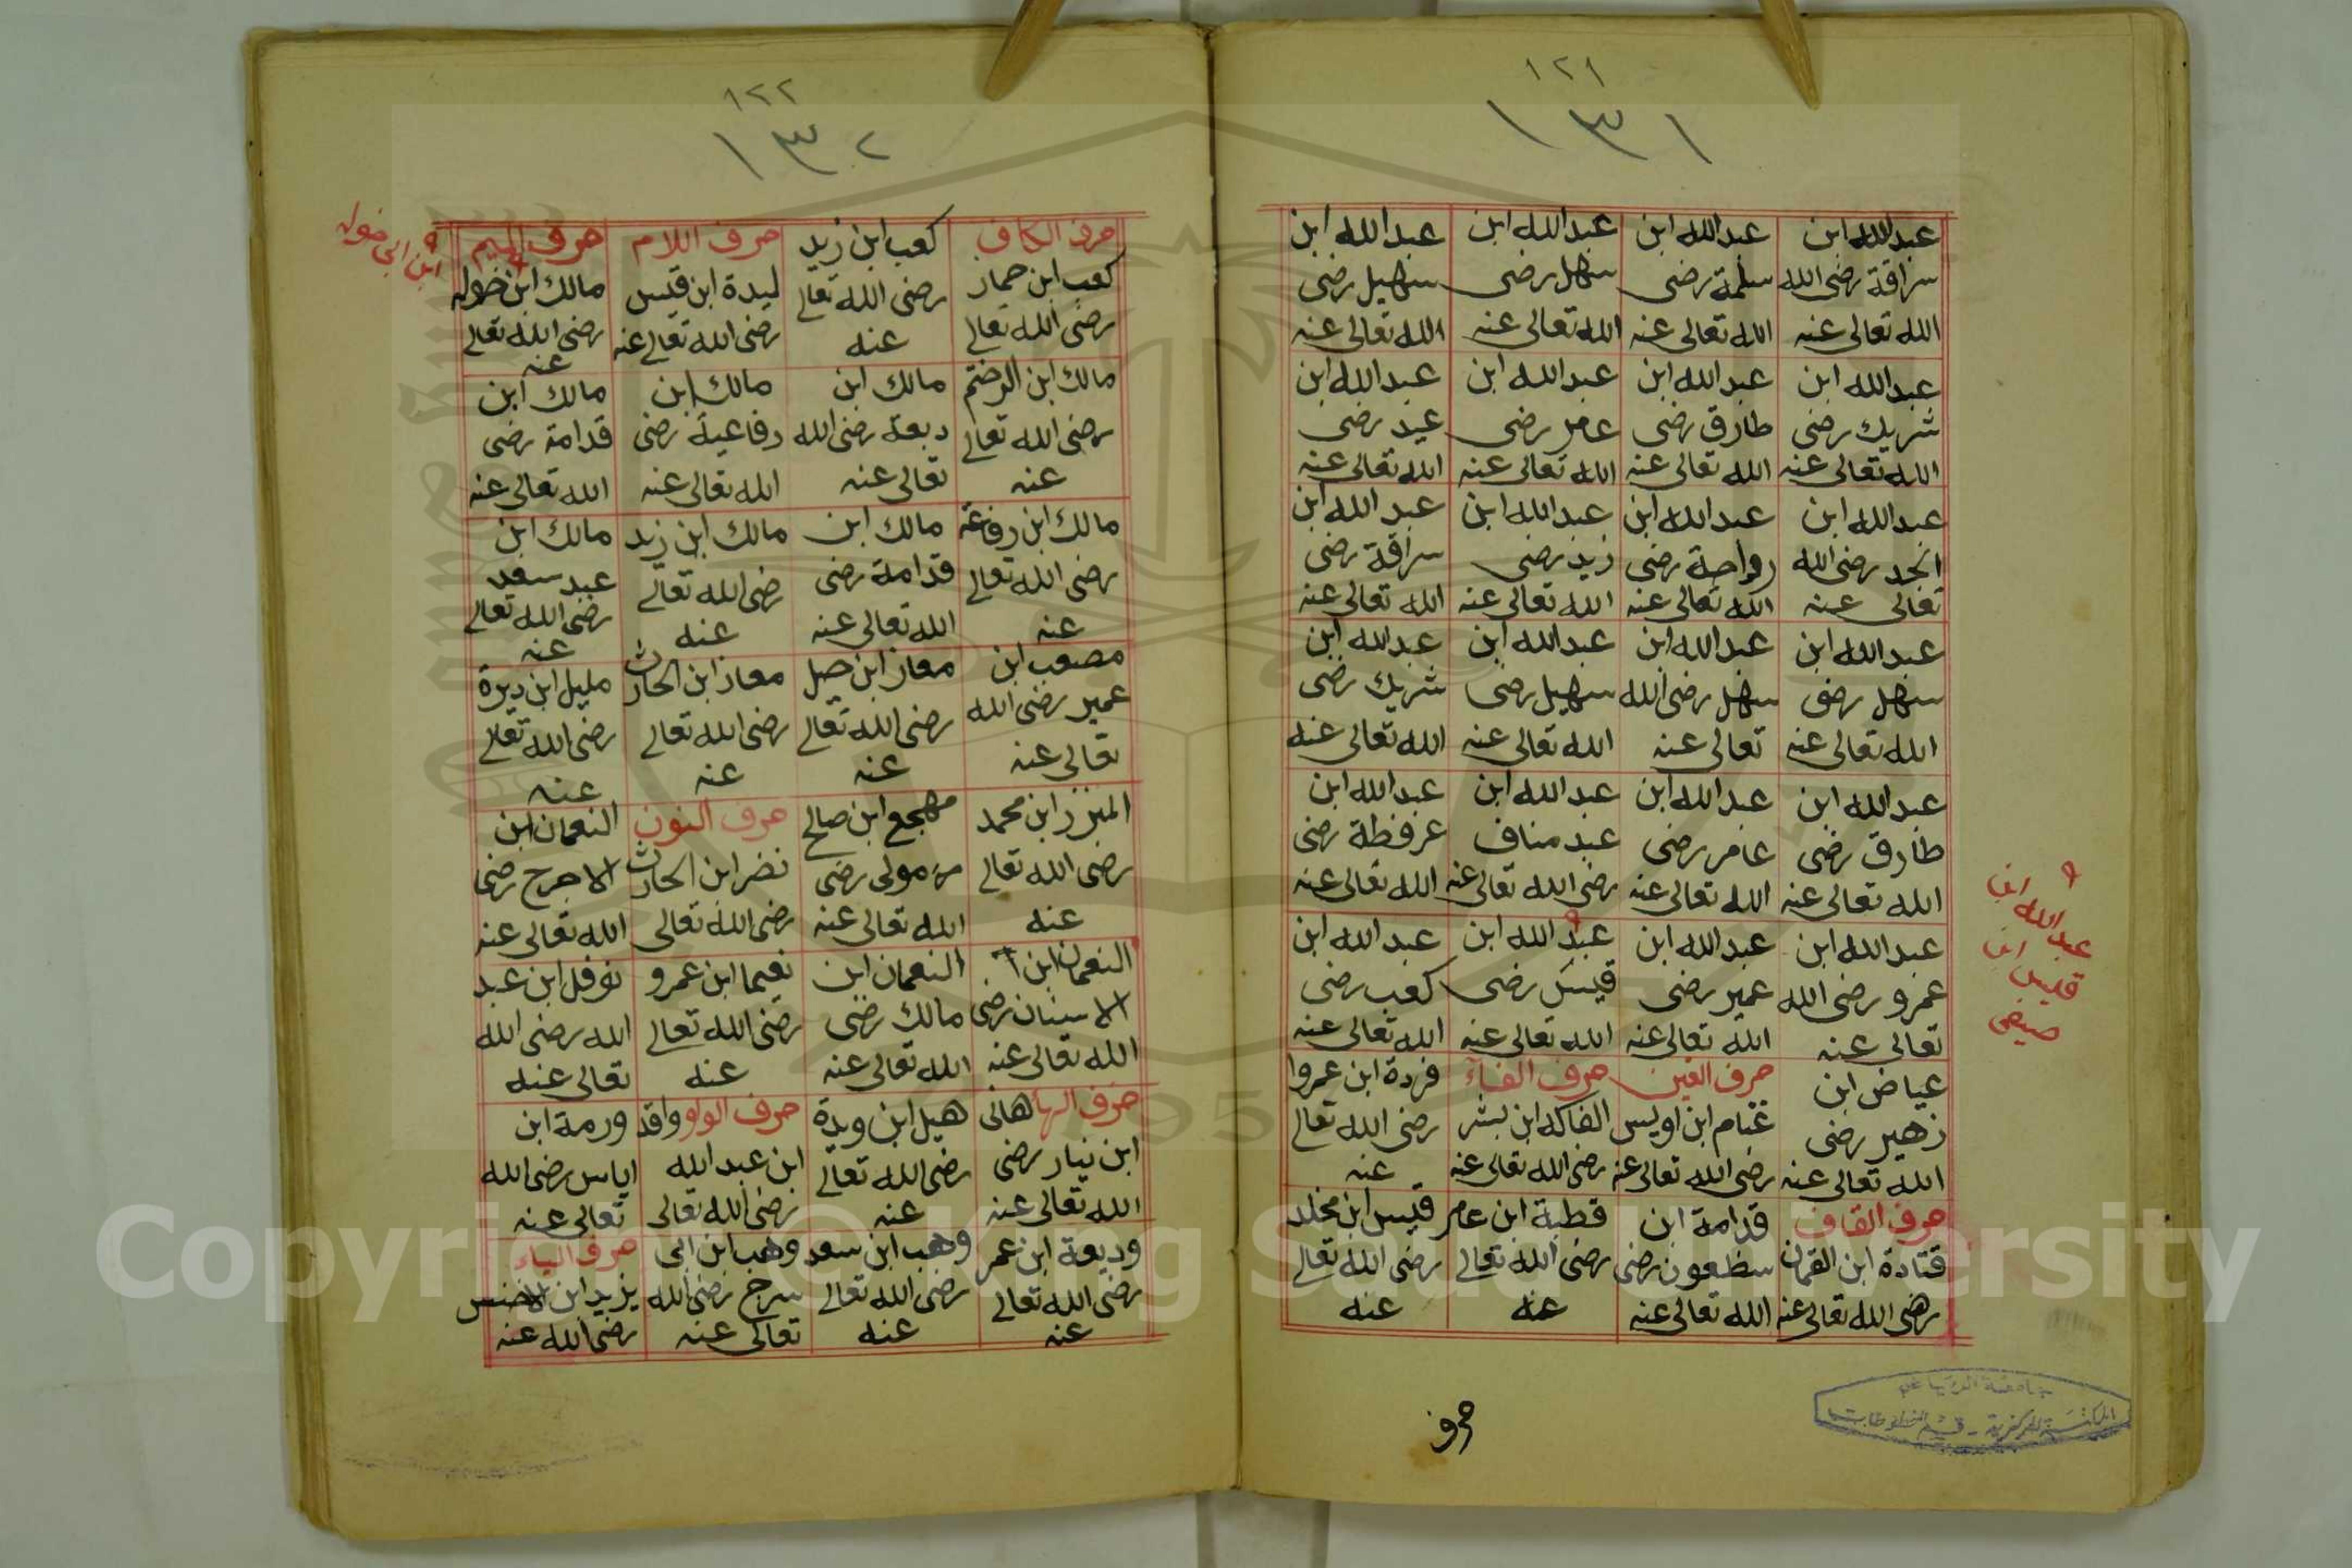 ١٢١
١٣١
عبد الله ابن سراقة رضى الله الله تعالى عنه
عبد الله ابن سلمة رضى الله تعالى عنه
عبد الله ابن سهل رضى الله تعالى عنه
عبد الله ابن سهيل رضى الله تعالى عنه
عبد الله ابن شريك رضى الله تعالى عنه
عبد الله ابن طارق رضى الله تعالى عنه
عبد الله ابن عامر رضى الله تعالى عنه
عبد الله ابن عيد رضى الله تعالى عنه
عبد الله ابن الجد رضى الله تعالى عنه
عبد الله ابن رواحة رضى الله تعالى عنه
عبد الله ابن زيد رضى الله تعالى عنه
عبد الله ابن سراقة رضى الله تعالى عنه
عبد الله ابن سهل رضى الله تعالى عنه
عبد الله ابن سهل رضى الله تعالى عنه
عبد الله ابن سهيل رضى الله تعالى عنه
عبد الله ابن شريك رضى الله تعالى عنه
عبد الله ابن طارق رضى الله تعالى عنه
عبد الله ابن عامر رضى الله تعالى عنه
عبد الله ابن عبد مناف رضى الله تعالى عنه
عبد الله ابن عرفطة رضى الله تعالى عنه
عبد الله ابن عمرو رضى الله تعالى عنه
عبد الله ابن عمير رضى الله تعالى عنه
عبد الله ابن قيس رضى الله تعالى عنه
عبد الله ابن كعب رضى الله تعالى عنه
عياض ابن زهير رضى الله تعالى عنه
حرف الغين غنام ابن اويس رضى الله تعالى عنه
حرف الفاء الفاكه ابن بشر رضى الله تعالى عنه
فردة ابن عمروا رضى الله تعالى عنه
حرف القاف قتادة ابن النعمان رضى الله تعالى عنه
قدامة ابن مظعون رضى الله تعالى عنه
قطبة ابن عامر رضى الله تعالى عنه
قيس ابن مخلد رضى الله تعالى عنه
عبد الله
قيس
صيفى
حرف
١٢٢
١٣٢
حرف الكاف كعب ابن حمار رضى الله تعالى
كعب ابن زيد رضى الله تعالى عنه
حرف اللام لبدة ابن قيس رضى الله تعالى عنه
حرف الميم مالك ابن خوله رضى الله تعالى عنه
ابن ابى خوله
مالك ابن الدخشم رضى الله تعالى عنه
مالك ابن ربعة رضى الله تعالى عنه
مالك ابن رفاعية رضى الله تعالى عنه
مالك ابن قدامة رضى الله تعالى عنه
مالك ابن رفاعة رضى الله تعالى عنه
مالك ابن قدامة رضى الله تعالى عنه
مالك ابن زيد رضى الله تعالى عنه
مالك ابن عبد سعد رضى الله تعالى عنه
مصعب ابن عمير رضى الله تعالى عنه
معاز ابن جبل رضى الله تعالى عنه
معاز ابن الحارث رضى الله تعالى عنه
مليل ابن دبرة رضى الله تعالى عنه
ابن محمد رضى الله تعالى عنه
مهجع ابن صالح مولى رضى الله تعالى عنه
حرف النون نضر ابن الحارث رضى الله تعالى
النعمان ابن الاعرج رضى الله تعالى عنه
النعمان ابن الاسنان رضى الله تعالى عنه
النعمان ابن مالك رضى الله تعالى عنه
نعيما ابن عمرو رضى الله تعالى عنه
نوفل ابن عبد الله رضى الله تعالى عنه
حرف الها هانى ابن نيار رضى الله تعالى عنه
هبيل ابن وبدة رضى الله تعالى عنه
حرف الواو واقد ابن عبد الله رضى الله تعالى
ورمة ابن اياس رضى الله تعالى عنه
وديعة ابن عمر رضى الله تعالى عنه
وهب ابن سعد رضى الله تعالى عنه
وهب ابن ابى سرح رضى الله تعالى عنه
حرف الياء يزيد ابن الاخنس رضى الله عنه
المكتبة المركزية - قسم المخطوطات
Copyright © King Saud University
1957